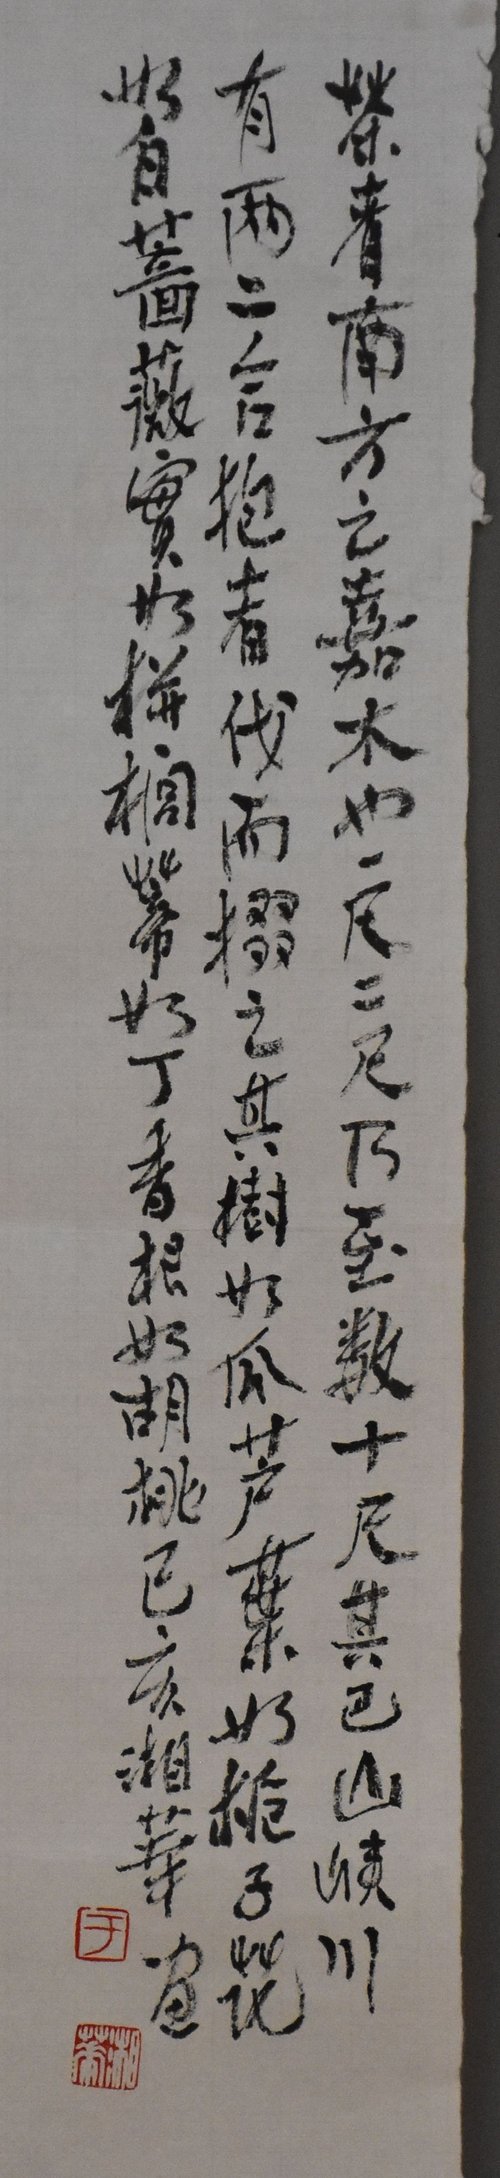 茶者南方之嘉木也一尺二尺乃至数十尺其巴山峡川
有两二合抱者伐而掇之其樹如瓜芦葉如栀子花
如白薔薇實如栟榈蒂如丁香根如胡桃己亥湘華画
于
湘華